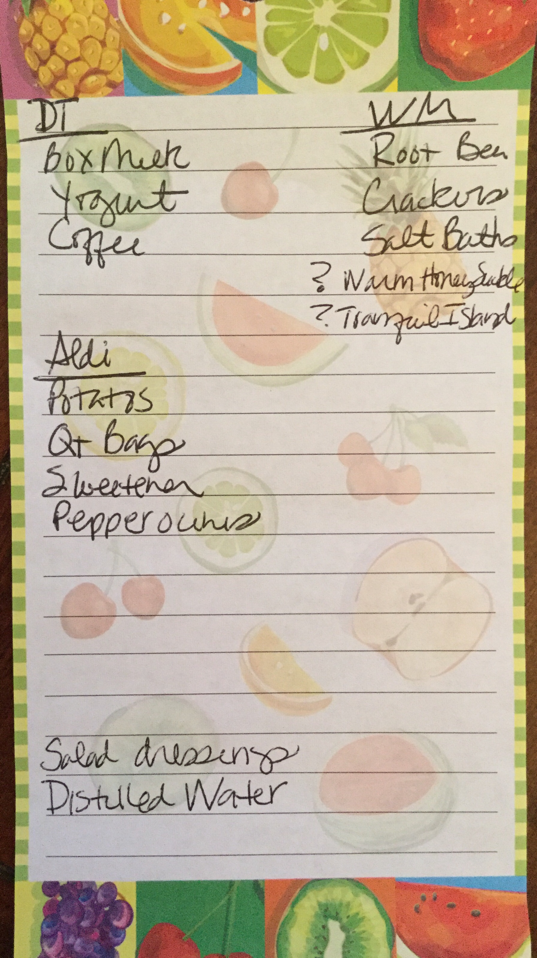 DT
Box Milk
Yogurt
Coffee
WM
Root Beer
Crackers
Salt Baths
? Warm Honey
? Tranquil Island
Aldi
Potatos
Qt Bags
Sweetener
Pepper
Salad dressings
Distilled Water